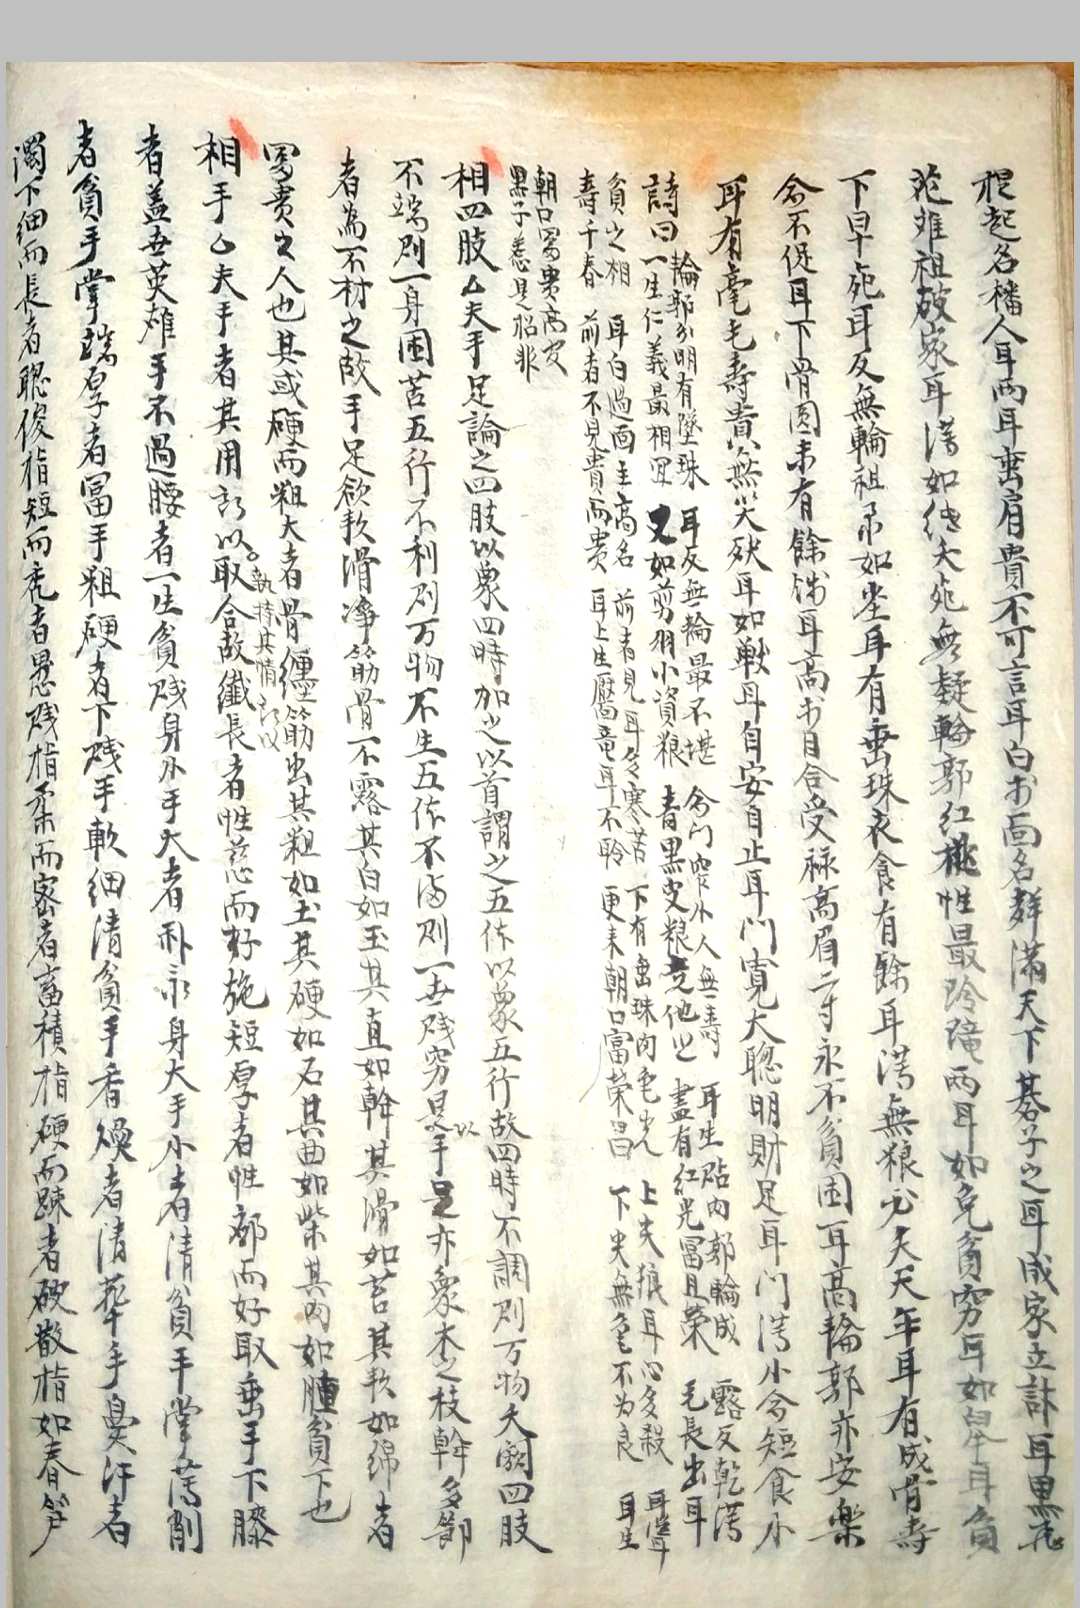 棍起名播人耳兩耳垂肩貴不可言耳白於面名群滿天下棊子之耳成家立計耳黑花
泛难祖破家耳薄如紙夭死無疑輪郭紅桃性最玲瓏兩耳如兔貧窮耳如皐耳負
下早死耳反無輪祖帛如尘耳有垂珠衣食有餘耳薄無根必夭天年耳有成骨寿
命不促耳下骨圓未有餘錢耳高於目合受祿高眉二寸永不貧困耳高輪郭亦安樂
耳有毫毛寿貴無災殃耳如獸耳自安自止耳門寬大聰明財足耳門薄小命短食小
詩曰 輪郭分明有墜珠 一生仁義最相宜
耳反無輪最不堪 又如剪羽小資粮
命門窄小人無壽 青黑皮粮走他
耳生貼肉郭輪成 盡有紅光冨且荣
露反乾薄貧之相
毛長出耳壽千春
耳白過面主高名 前者不見貴而貴
前者見耳多寒苦 耳上生黶竜耳不聆
下有垂珠肉色光 更来朝口富荣昌
上尖狼耳心多殺 下尖無色不为良
耳聳朝口冨貴高安
耳生黑子惹是招非
相四肢 夫手足論之四肢以象四時加之以首謂之五体以象五行故四時不調則万物夭閼四肢
不端則一身困苦五行不利則万物不生五体不 则一世贱穷是以手足亦象木之枝幹多節
者為不材之故手足欲軟滑净筋骨不露其白如玉其直如幹其滑如苔其软如绵者
冨贵之人也其或硬而粗大者骨纏筋出其粗如土其硬如石其曲如柴其肉如腫貧下也
相手 夫手者其用 以取合 執持其情 故纖長者性慈而好施短厚者性鄙而好取垂手下膝
者盖世英雄手不過腰者一生貧贱身小手大者 身大手小者清貧手掌薄削
者貧手掌端厚者冨手粗硬者下贱手軟細清貧手香煖者清華手臭汗者
濁下細而長者聰俊指短而秃者愚贱指柔而密者畜積指硬而踈者破散指如春筍